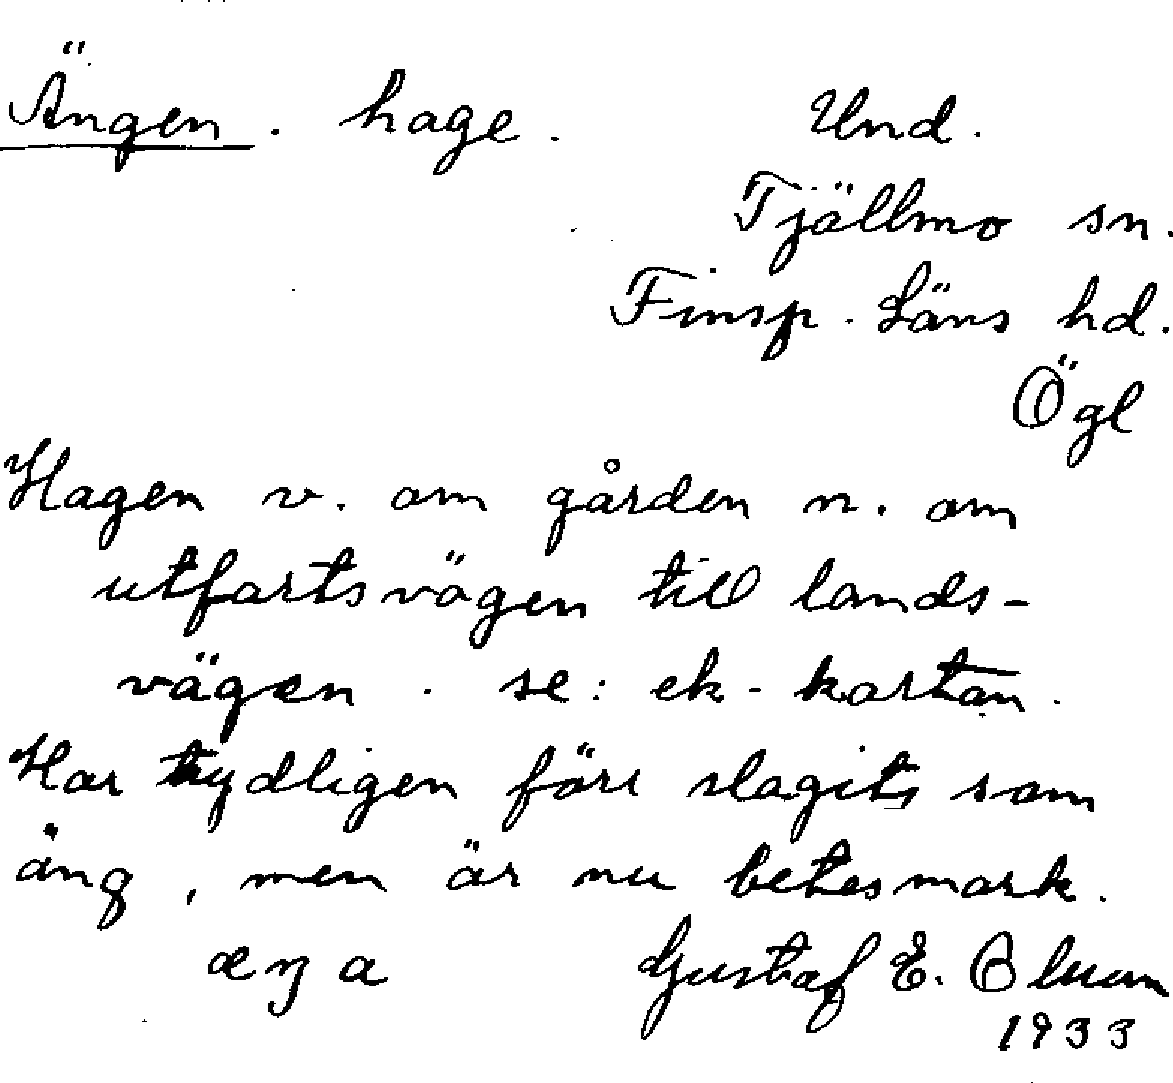 Ängen. hage. Und.
Tjällmo sn.
Finsp. Läns hd.
Ögl
Hagen v. om gården n. om
utfartsvägen till lands-
vägen. se: ek-kartan.
Har tydligen förr slagits som
äng, men är nu betesmark.
æŋa Gustaf E.
1933